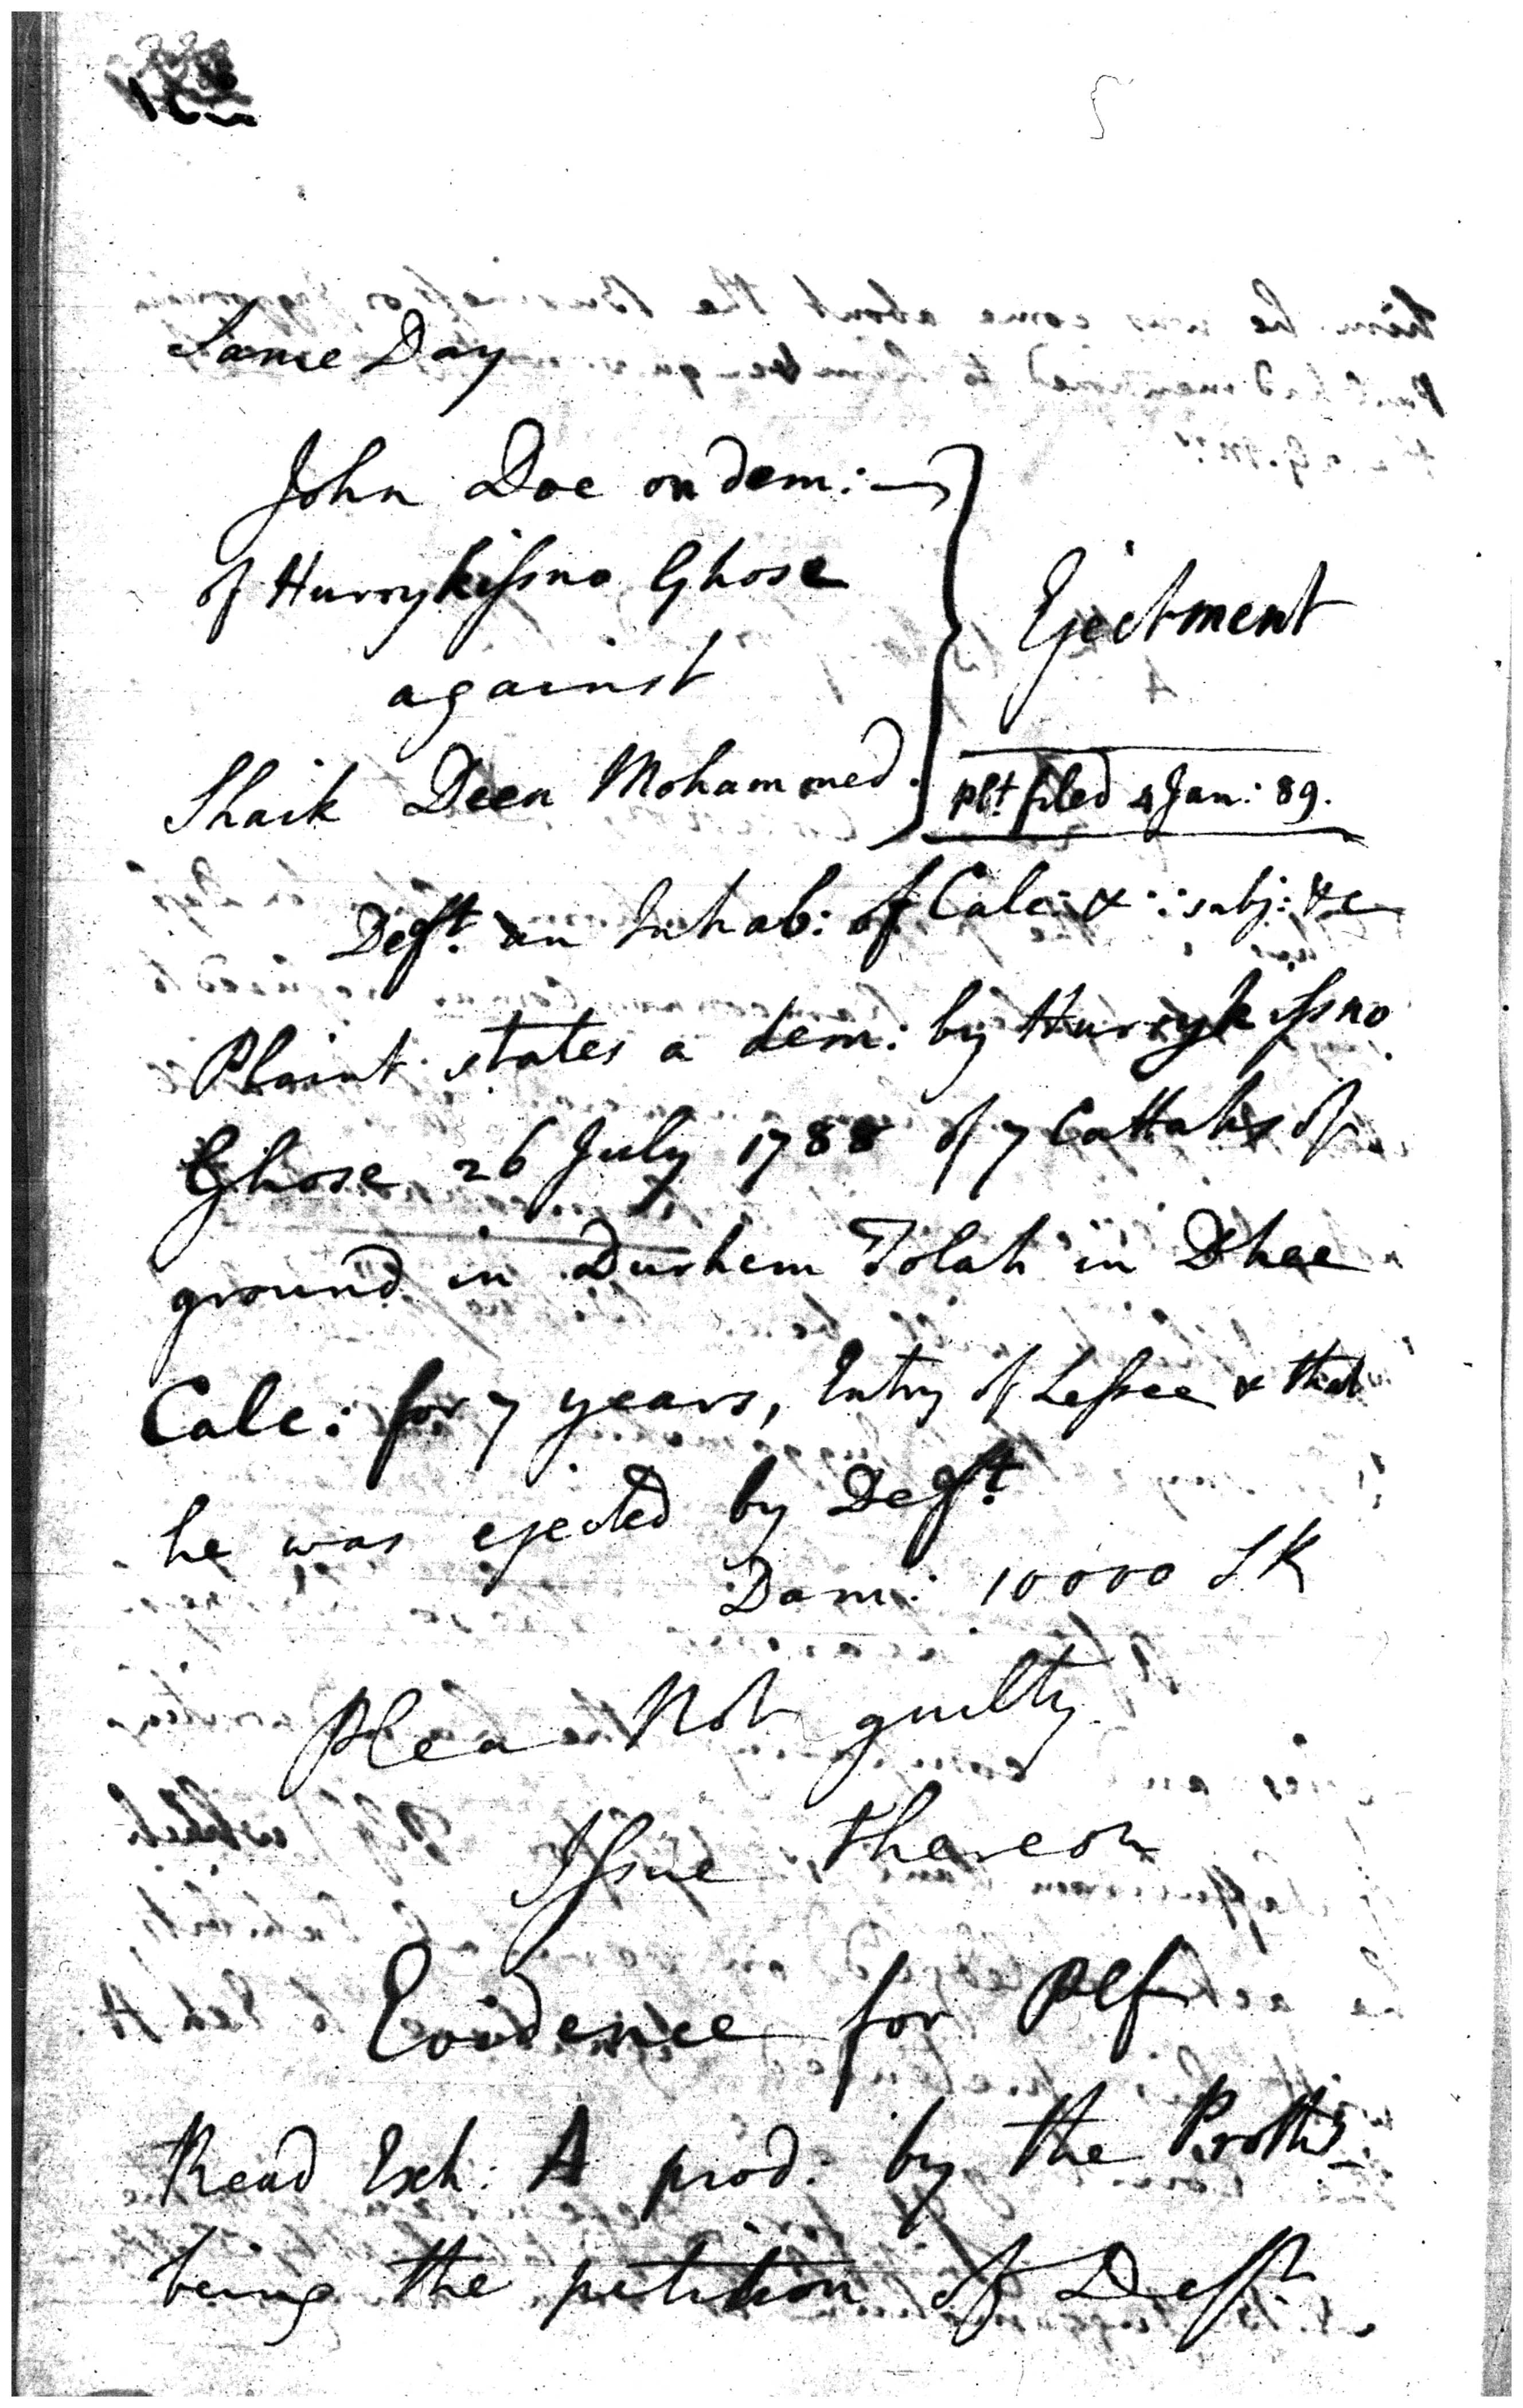 Same Day
John Doe on dem:
of Hurrykissno Ghose
against
Shaik Deen Mohammed.
Ejectment
plt filed 4 Jan: 89.
Deft. an Inhab: of Calc: & : subj: &c
Plaint states a dem: by Hurrykissno
Ghose 26 July 1788 of 7 Cattahs of
ground in Durhem Tolah in Dhee
Calc: for 7 years, Entry of Lessee & that
he was ejected by Deft.
Dam: 10000 SR
Plea Not guilty
Issue thereon
Evidence for Plf
Read Exh: A prod: by the Prothy
being the petition of Deft